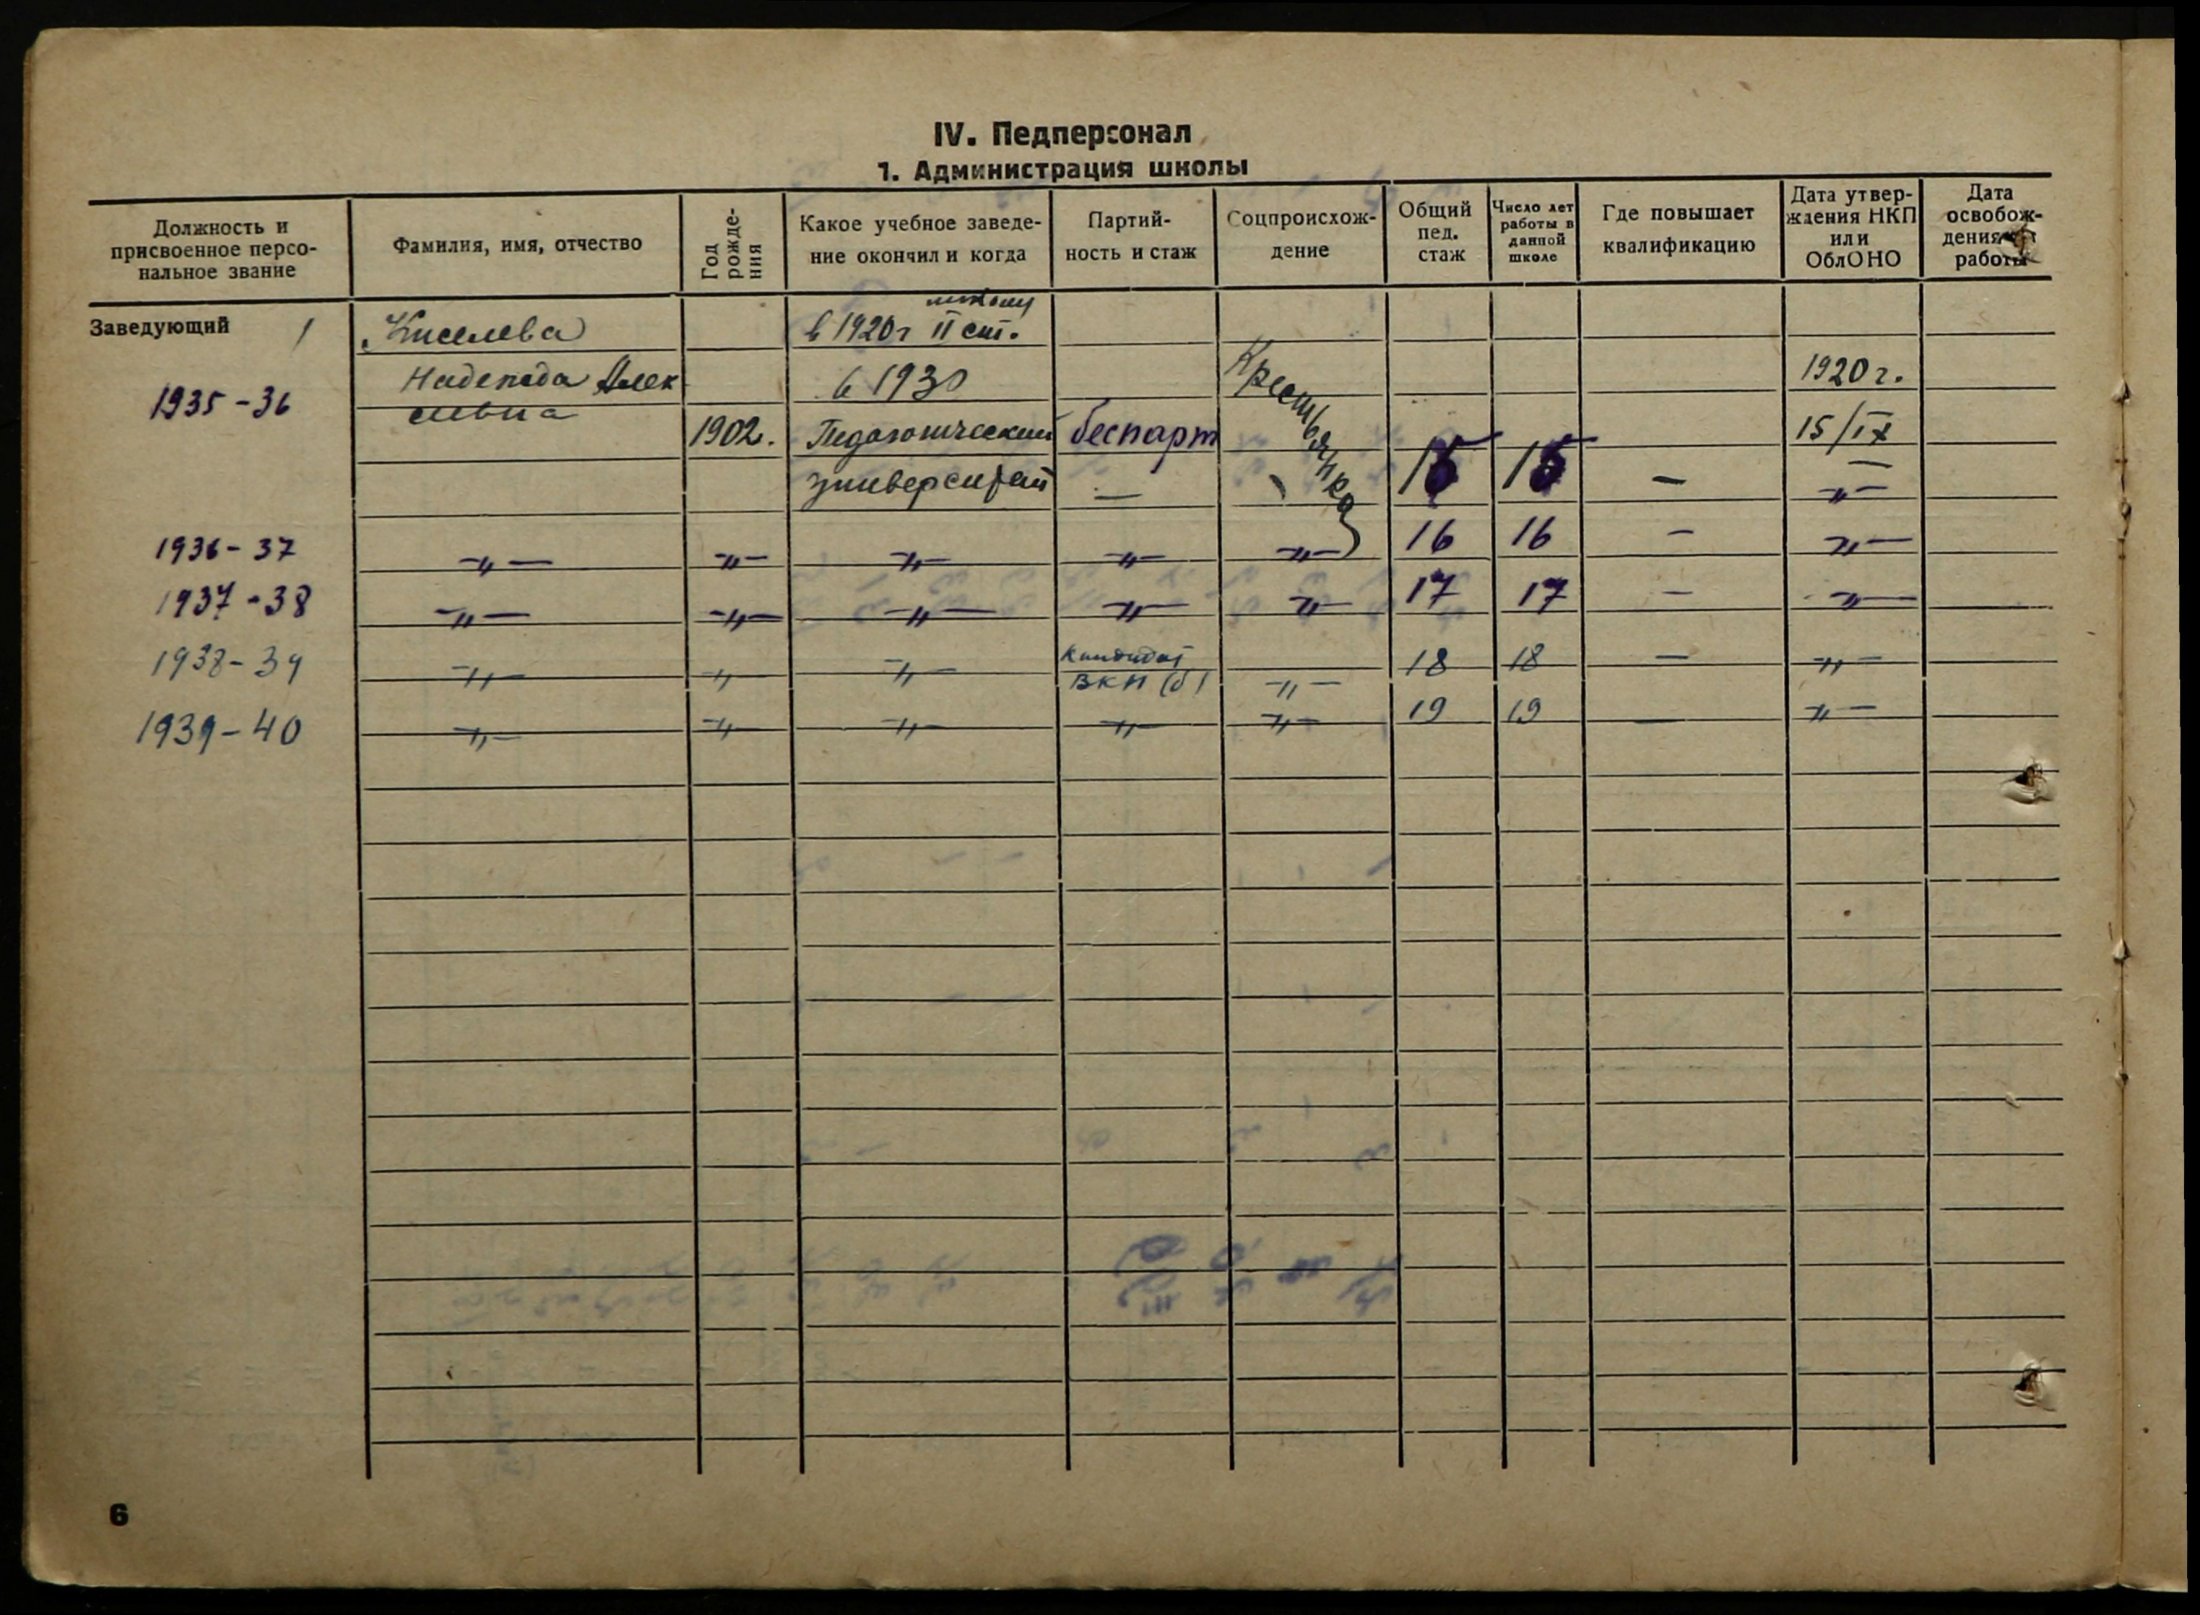 IV. Педперсонал
1. Администрация школы
Должность и присвоенное персо- нальное звание | Фамилия, имя, отчество | Год рожде- ния | Какое учебное заведе- ние окончил и когда | Партий- ность и стаж | Соцпроисхож- дение | Общий пед. стаж | Число лет работы в данной школе | Где повышает квалификацию | Дата утвер- ждения НКП или ОблОНО | Дата освобож- дения работы
школу
Заведующий 1 Киселева в 1920 г II ст.
1935-36 Надежда Алек в 1930 Крестьянка 1920 г.
сеевна 1902. Педагогический беспарт 15/IX
университет — 15 15 — —„—
1936-37 —„— —„— —„— —„— —„— 16 16 — —„—
1937-38 —„— —„— —„— —„— —„— 17 17 — —„—
1938-39 —„— —„— —„— Кандидат ВКП(б) —„— 18 18 — —„—
1939-40 —„— —„— —„— —„— —„— 19 19 — —„—
6